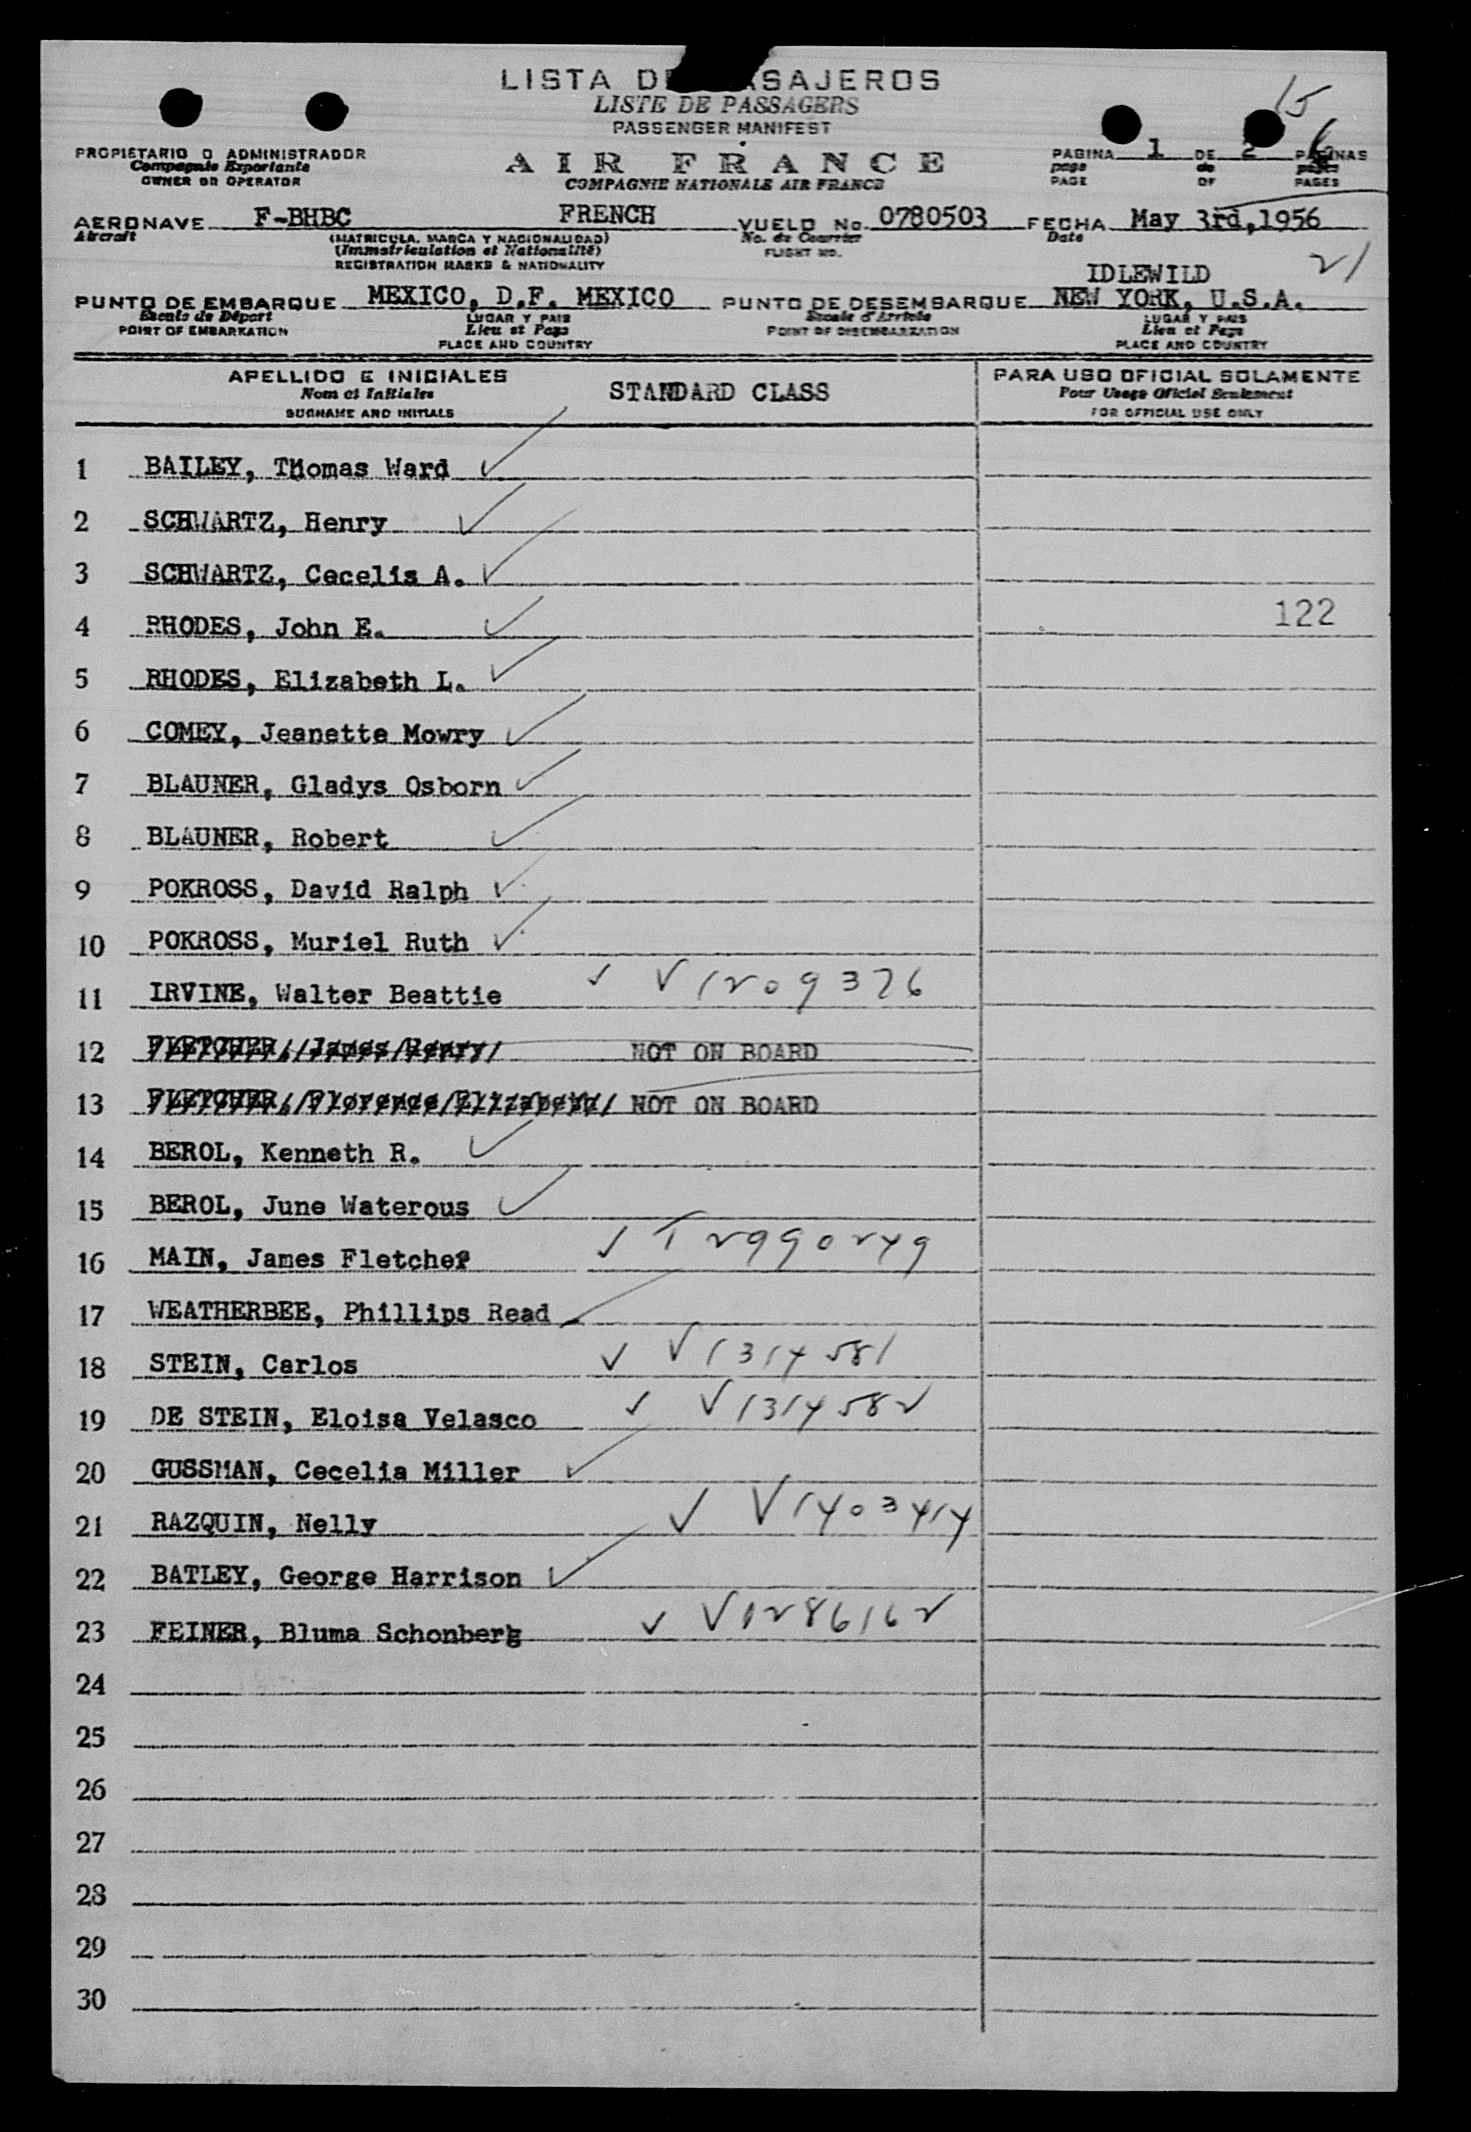 LISTA DE PASAJEROS
LISTE DE PASSAGERS
PASSENGER MANIFEST
15
PROPIETARIO O ADMINISTRADOR
Compagnie Exportante
OWNER OR OPERATOR
AIR FRANCE
COMPAGNIE NATIONALE AIR FRANCE
PAGINA 1 DE 2 PAGINAS
page de pages
PAGE OF PAGES
6
AERONAVE F-BHBC FRENCH VUELO No. 0780503 FECHA May 3rd,1956
Aircraft (MATRICULA, MARCA Y NACIONALIDAD) No. de Courrier Date
(Immatriculation et Nationalité) FLIGHT NO.
REGISTRATION MARKS & NATIONALITY
21
IDLEWILD
PUNTO DE EMBARQUE MEXICO, D.F. MEXICO PUNTO DE DESEMBARQUE NEW YORK, U.S.A.
Escale de Départ LUGAR Y PAIS Escale d'Arrivée LUGAR Y PAIS
POINT OF EMBARKATION Lieu et Pays POINT OF DISEMBARKATION Lieu et Pays
PLACE AND COUNTRY PLACE AND COUNTRY
APELLIDO E INICIALES STANDARD CLASS PARA USO OFICIAL SOLAMENTE
Nom et Initiales Pour Usage Oficiel Seulement
SURNAME AND INITIALS FOR OFFICIAL USE ONLY
1 BAILEY, THomas Ward ✓
2 SCHWARTZ, Henry ✓
3 SCHWARTZ, Cecelia A. ✓
122
4 RHODES, John E. ✓
5 RHODES, Elizabeth L. ✓
6 COMEY, Jeanette Mowry ✓
7 BLAUNER, Gladys Osborn ✓
8 BLAUNER, Robert ✓
9 POKROSS, David Ralph ✓
10 POKROSS, Muriel Ruth ✓
11 IRVINE, Walter Beattie ✓ V1209376
12 FLETCHER, James Henry NOT ON BOARD
13 FLETCHER, Florence Elizabeth NOT ON BOARD
14 BEROL, Kenneth R. ✓
15 BEROL, June Waterous ✓
16 MAIN, James Fletcher ✓ T2990249
17 WEATHERBEE, Phillips Read ✓
18 STEIN, Carlos ✓ V1314581
19 DE STEIN, Eloisa Velasco ✓ V1314582
20 GUSSMAN, Cecelia Miller ✓
21 RAZQUIN, Nelly ✓ V1403414
22 BATLEY, George Harrison ✓
23 FEINER, Bluma Schonberg ✓ V1286162
24
25
26
27
28
29
30